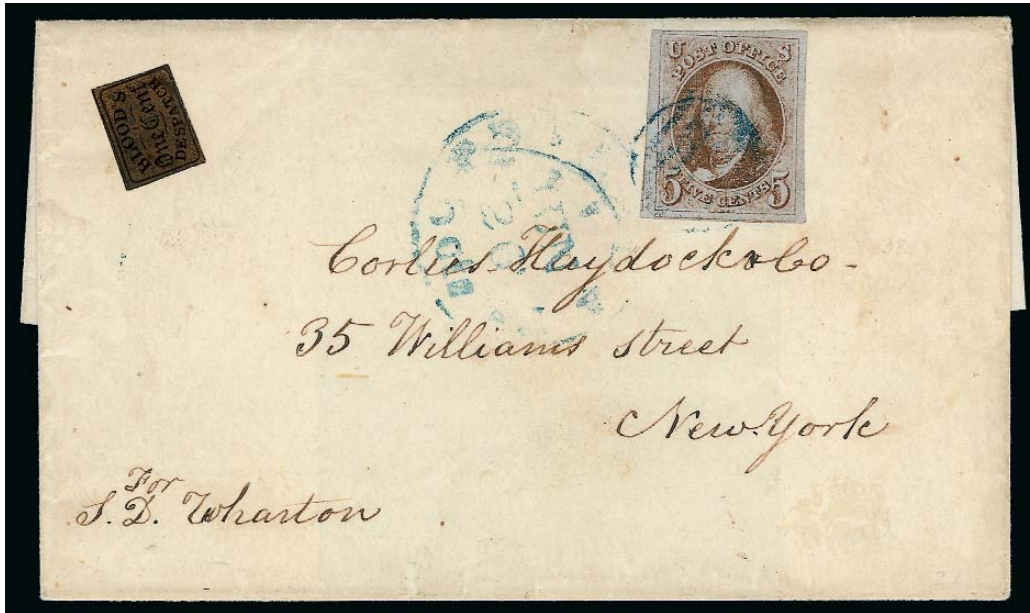 BLOOD'S
One Cent
DESPATCH
U S
POST OFFICE
5 FIVE CENTS 5
Corlies. Haydock & Co-
35 Williams street
New. York
For
S. D. Wharton